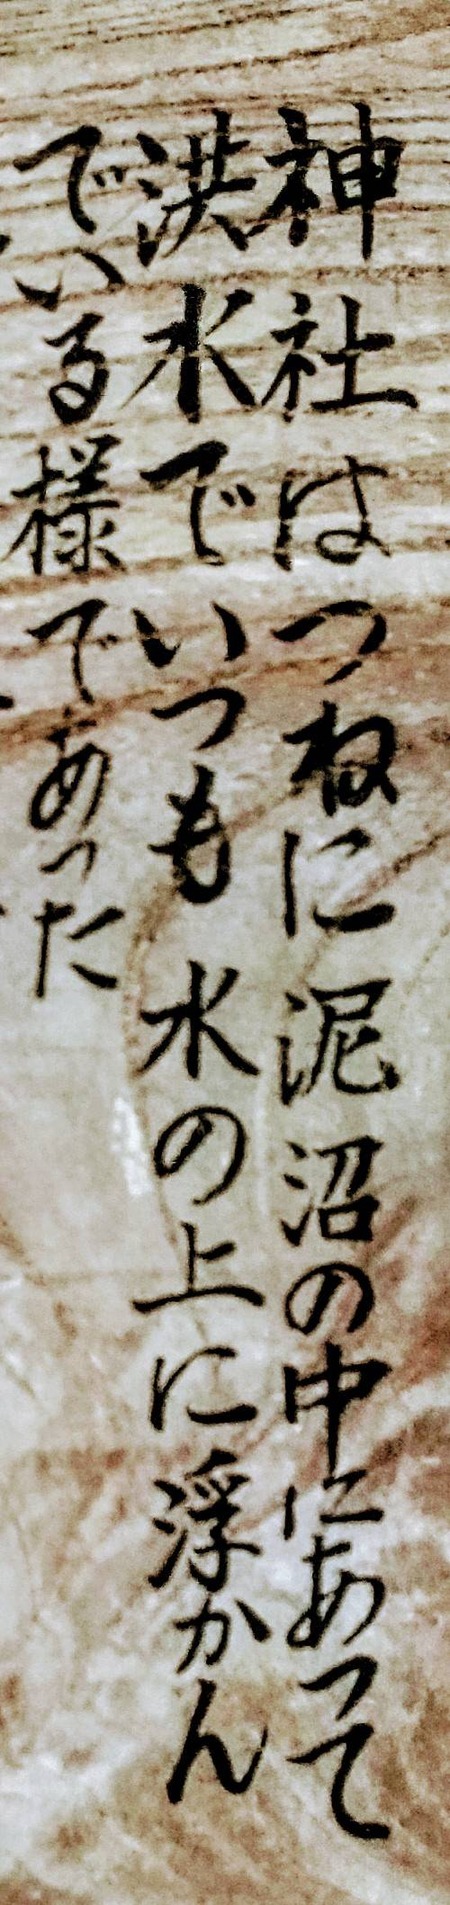 神社はつねに泥沼の中にあって
洪水でいつも水の上に浮かん
でいる様であった